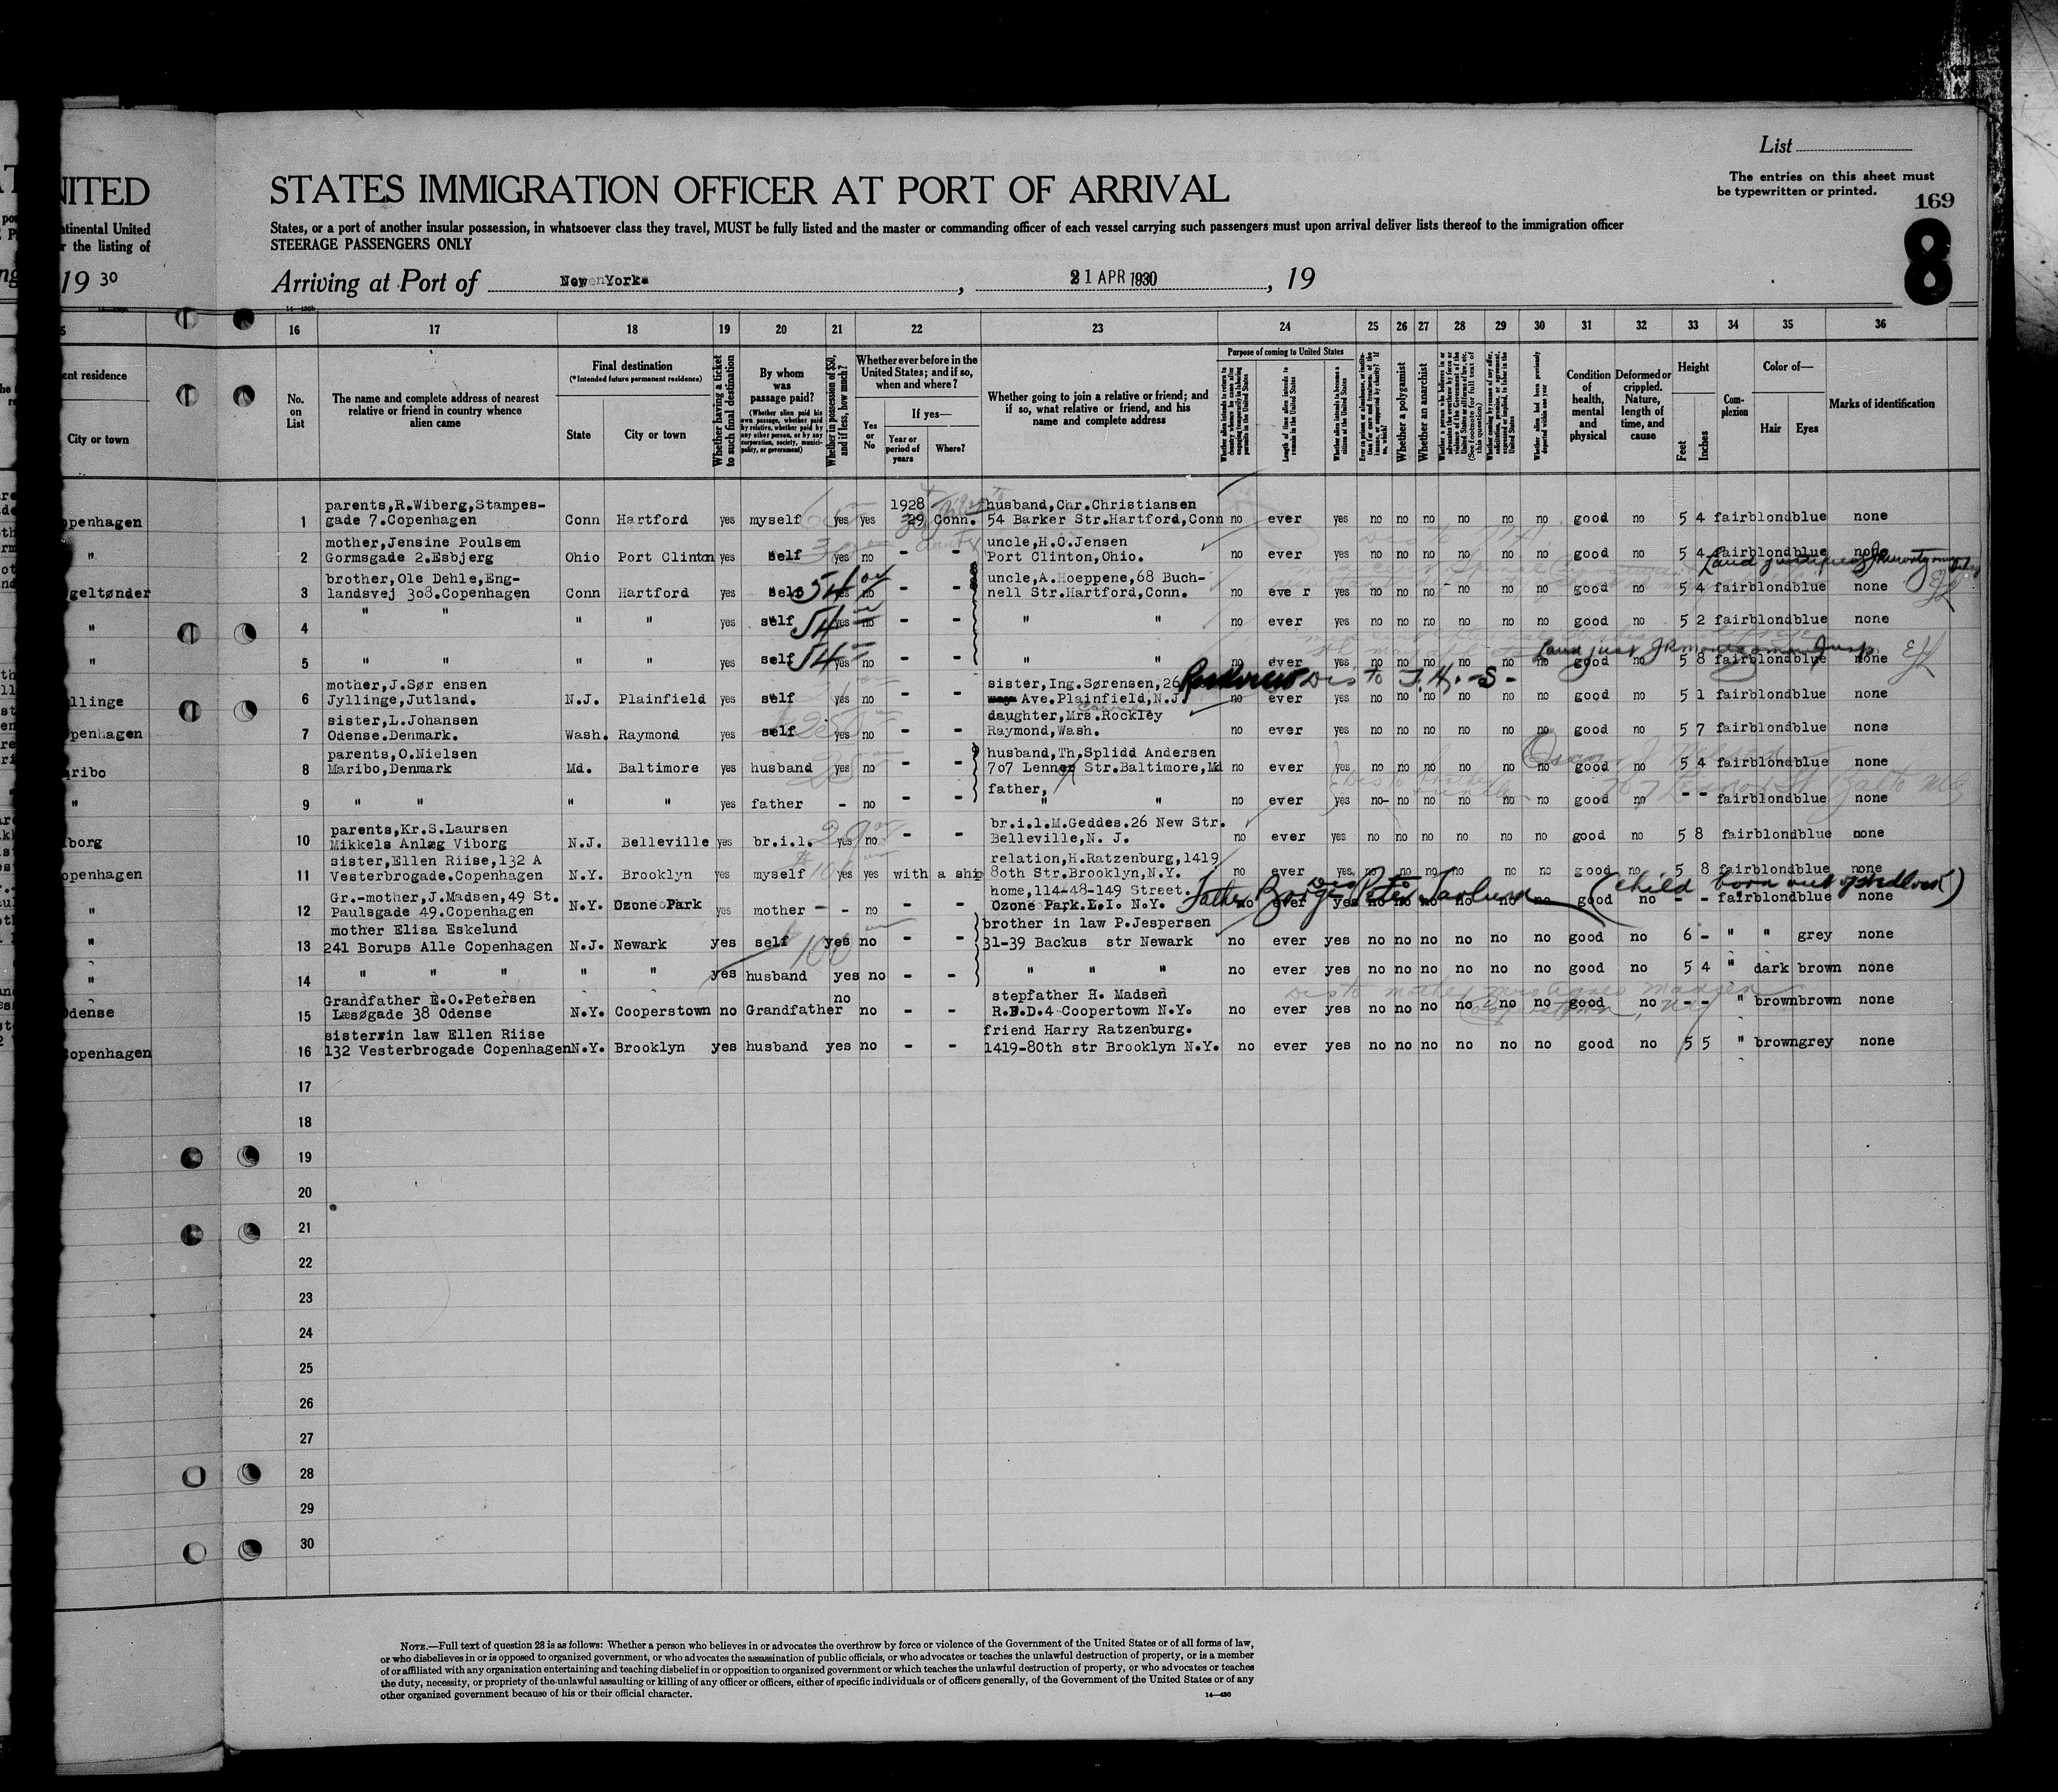 List
The entries on this sheet must
be typewritten or printed.
169
8
NITED
STATES IMMIGRATION OFFICER AT PORT OF ARRIVAL
tinental United
r the listing of
States, or a port of another insular possession, in whatsoever class they travel, MUST be fully listed and the master or commanding officer of each vessel carrying such passengers must upon arrival deliver lists thereof to the immigration officer
STEERAGE PASSENGERS ONLY
19 30
Arriving at Port of New York, 21 APR 1930, 19
16 17 18 19 20 21 22 23 24 25 26 27 28 29 30 31 32 33 34 35 36
ent residence
City or town
No. on List
The name and complete address of nearest relative or friend in country whence alien came
Final destination
(*Intended future permanent residence)
State
City or town
Whether having a ticket to such final destination
By whom was passage paid?
(Whether alien paid his own passage, whether paid by relative, whether paid by any other person, or by any corporation, society, municipality, or government)
Whether in possession of $50, and if less, how much?
Whether ever before in the United States; and if so, when and where?
Yes or No
If yes—
Year or period of years
Where?
Whether going to join a relative or friend; and if so, what relative or friend, and his name and complete address
Purpose of coming to United States
Length of time alien intends to remain in the United States
Whether alien intends to become a citizen of the United States
Whether a polygamist
Whether an anarchist
Condition of health, mental and physical
Deformed or crippled. Nature, length of time, and cause
Height
Feet
Inches
Complexion
Color of—
Hair
Eyes
Marks of identification
openhagen
1 parents,R.Wiberg,Stampes-
gade 7.Copenhagen Conn Hartford yes myself yes yes 1928 29 Conn. husband,Chr.Christiansen
54 Barker Str.Hartford,Conn no ever yes no no no no no no good no 5 4 fair blond blue none
"
2 mother,Jensine Poulsem
Gormsgade 2.Esbjerg Ohio Port Clinton yes self yes no - - uncle,H.O.Jensen
Port Clinton,Ohio. no ever yes no no no no no no good no 5 4 fair blond blue none
geltønder
3 brother,Ole Dehle,Eng-
landsvej 308.Copenhagen Conn Hartford yes self 54 yes no - - uncle,A.Hoeppene,68 Buch-
nell Str.Hartford,Conn. no eve r yes no no no no no no good no 5 4 fair blond blue none
"
4 " " " " yes self 54 yes no - - " " no ever yes no no no no no no good no 5 2 fair blond blue none
"
5 " " " " yes self 54 yes no - - " " no ever yes no no no no no no good no 5 8 fair blond blue none
llinge
6 mother,J.Sør ensen
Jyllinge,Jutland. N.J. Plainfield yes self yes no - - sister,Ing.Sørensen,26
Ave.Plainfield,N.J. no ever yes no no no no no no good no 5 1 fair blond blue none
penhagen
7 sister,L.Johansen
Odense.Denmark. Wash. Raymond yes self yes no - - daughter,Mrs.Rockley
Raymond,Wash. no ever yes no no no no no no good no 5 7 fair blond blue none
aribo
8 parents,O.Nielsen
Maribo,Denmark Md. Baltimore yes husband yes no - - husband,Th,Splidd Andersen
707 Lennox Str.Baltimore,Md no ever yes no no no no no no good no 5 4 fair blond blue none
"
9 " " " " yes father - no - - father,
" " no ever yes no- no no no no no good no - - fair blond blue none
borg
10 parents,Kr.S.Laursen
Mikkels Anlæg Viborg N.J. Belleville yes br.i.l. yes no - - br.i.l.M.Geddes.26 New Str.
Belleville,N. J. no ever yes no no no no no no good no 5 8 fair blond blue none
openhagen
11 sister,Ellen Riise,132 A
Vesterbrogade.Copenhagen N.Y. Brooklyn yes myself yes yes with a ship relation,H.Ratzenburg,1419
80th Str.Brooklyn,N.Y. no ever yes no no no no no no good no 5 8 fair blond blue none
Father (child born out of wedlock)
"
12 Gr.-mother,J.Madsen,49 St.
Paulsgade 49.Copenhagen N.Y. Ozone Park yes mother - - no - - home,114-48-149 Street.
Ozone Park.L.I. N.Y. no ever yes no no no no no no good no - - fair blond blue none
"
13 mother Elisa Eskelund
241 Borups Alle Copenhagen N.J. Newark yes self 100 yes no - - brother in law P.Jespersen
31-39 Backus str Newark no ever yes no no no no no no good no 6 - " " grey none
"
14 " " " " " yes husband yes no - - " " " no ever yes no no no no no no good no 5 4 " dark brown none
Odense
15 Grandfather E.O.Petersen
Læsøgade 38 Odense N.Y. Cooperstown no Grandfather no no - - stepfather H. Madsen
R.F.D.4 Coopertown N.Y. no ever yes no no no no no no good no - - " brown brown none
Copenhagen
16 sister in law Ellen Riise
132 Vesterbrogade Copenhagen N.Y. Brooklyn yes husband yes no - - friend Harry Ratzenburg.
1419-80th str Brooklyn N.Y. no ever yes no no no no no no good no 5 5 " brown grey none
17
18
19
20
21
22
23
24
25
26
27
28
29
30
NOTE.—Full text of question 28 is as follows: Whether a person who believes in or advocates the overthrow by force or violence of the Government of the United States or of all forms of law,
or who disbelieves in or is opposed to organized government, or who advocates the assassination of public officials, or who advocates or teaches the unlawful destruction of property, or is a member
of or affiliated with any organization entertaining and teaching disbelief in or opposition to organized government or which teaches the unlawful destruction of property, or who advocates or teaches
the duty, necessity, or propriety of the unlawful assaulting or killing of any officer or officers, either of specific individuals or of officers generally, of the Government of the United States or of any
other organized government because of his or their official character.
14—430